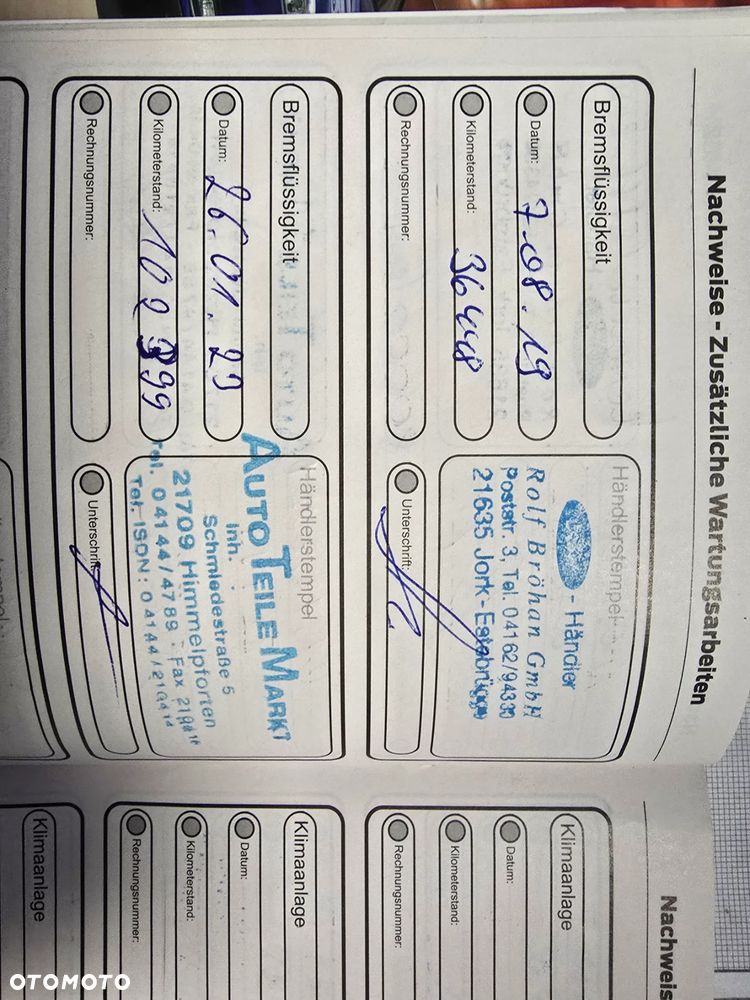 Nachweise - Zusätzliche Wartungsarbeiten
Bremsflüssigkeit
Datum: 7.08.19
Kilometerstand: 36448
Rechnungsnummer:
Händlerstempel
- Händler
Rolf Bröhan GmbH
Poststr. 3, Tel. 04162/94330
21635 Jork-Estebrügge
Unterschrift:
Bremsflüssigkeit
Datum: 26.01.23
Kilometerstand:
Rechnungsnummer:
Händlerstempel
AUTO TEILE MARKT
Inh.
Schmiedestraße 5
21709 Himmelpforten
Tel. 04144/4789 - Fax
Tel. ISDN: 04144/210414
Unterschrift:
Nachweis
Klimaanlage
Datum:
Kilometerstand:
Rechnungsnummer:
Klimaanlage
Datum:
Kilometerstand:
Rechnungsnummer:
Klimaanlage
OTOMOTO